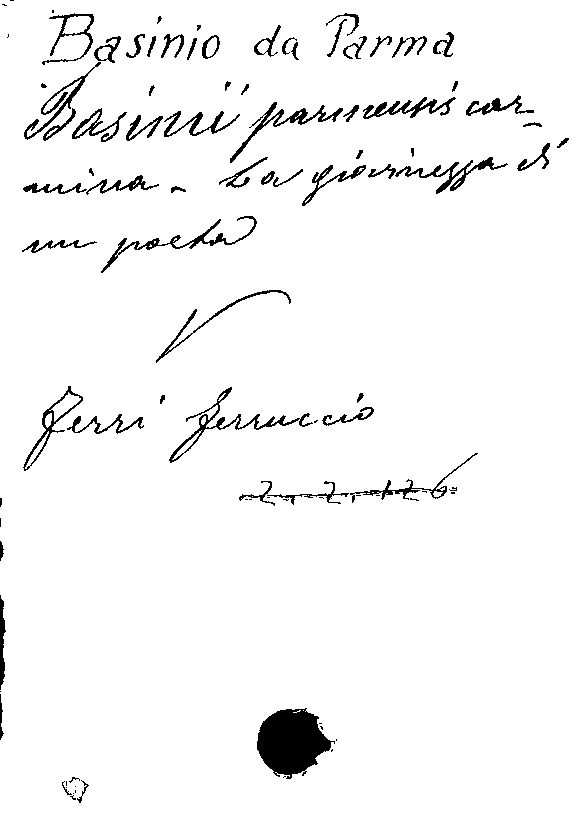 Basinio da Parma
Basinii parmensis car-
mina - La giovinezza di
un poeta
V
Ferri Ferruccio
Z. Z. 126